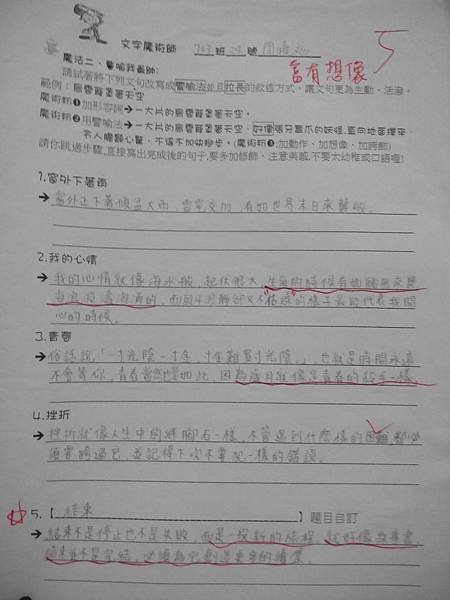 文字魔術師 班 號
5
富有想像
魔法二、譬喻我最帥：
請試著將下列文句改寫成譬喻法並且拉長的敘述方式，讓文句更為生動、活潑。
範例：烏雲籠罩著天空
魔術粉❶加形容詞→一大片的烏雲籠罩著天空。
魔術粉❷用譬喻法→一大片的烏雲籠罩著天空，好像張牙舞爪的妖怪，直向地面撲來，
令人膽顫心驚，不得不加快腳步。(魔術粉❸:加動作、加想像、加誇飾)
請你跳過步驟,直接寫出完成後的句子,要多加修飾、注意美感,不要太幼稚或口語喔!
1.窗外下著雨
→窗外正下著傾盆大雨，雷電交加，有如世界末日來襲般。
2.我的心情
→我的心情就像海水般，起伏很大，生氣的時候有如
的，而風平浪靜卻又不 的樣子最能代表我開
心的時候。
3.青春
→俗話說，「一寸光陰一寸金，寸金難買寸光陰。」，也就是時間永遠
不會等你，青春當然也是如此，因為歲月就像是青春的 一樣。
4.挫折
→挫折就像人生中的絆腳石一樣，不管遇到什麼樣的困難，都必
須要跨過它，並記得下次不要犯一樣的錯誤。
5.【結束】題目自訂
→結束不是停止也不是失敗，而是一段新的旅程，就好像故事書，
結束並不是完結，